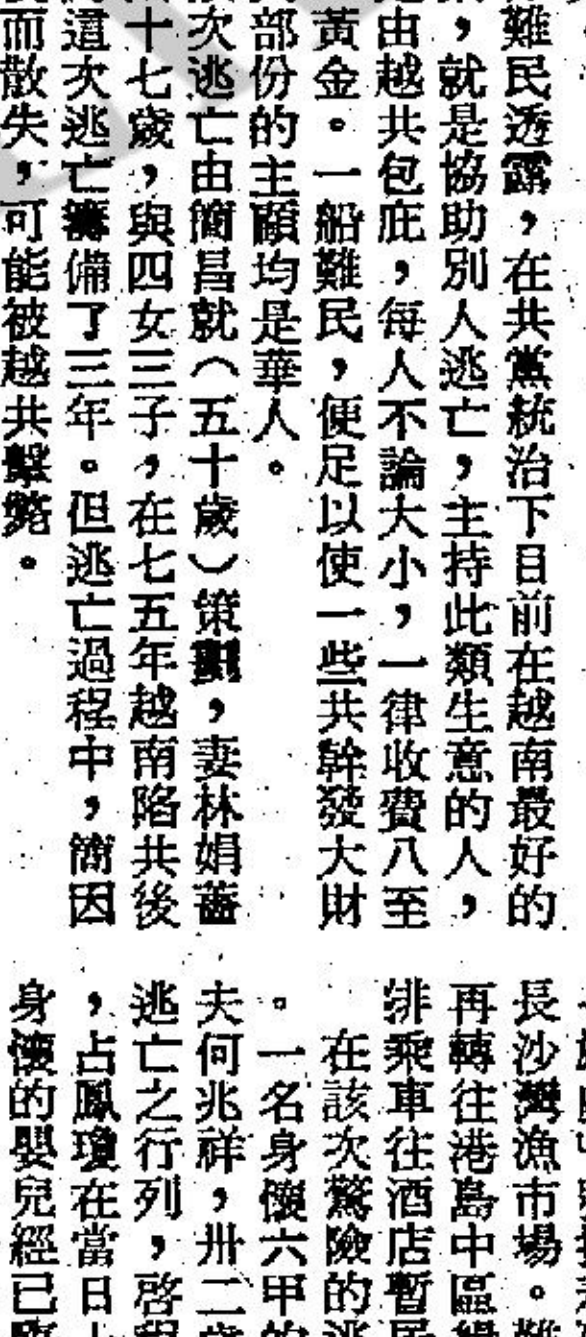 難民透露，在共黨統治下目前在越南最好的
，就是協助別人逃亡，主持此類生意的人，
由越共包庇，每人不論大小，一律收費八至
黃金。一船難民，便足以使一些共幹發大財
部份的主顧均是華人。
次逃亡由簡昌就（五十歲）策劃，妻林娟
十七歲，與四女三子，在七五年越南陷共後
這次逃亡籌備了三年。但逃亡過程中，簡因
而散失，可能被越共擊斃。
長沙灣漁市場。
再轉往港島中區
排乘車往酒店暫居
在該次驚險的逃
。一名身懷六甲的
夫何兆祥，卅二歲
逃亡之行列，啓程
，占鳳瓊在當日
身懷的嬰兒經已